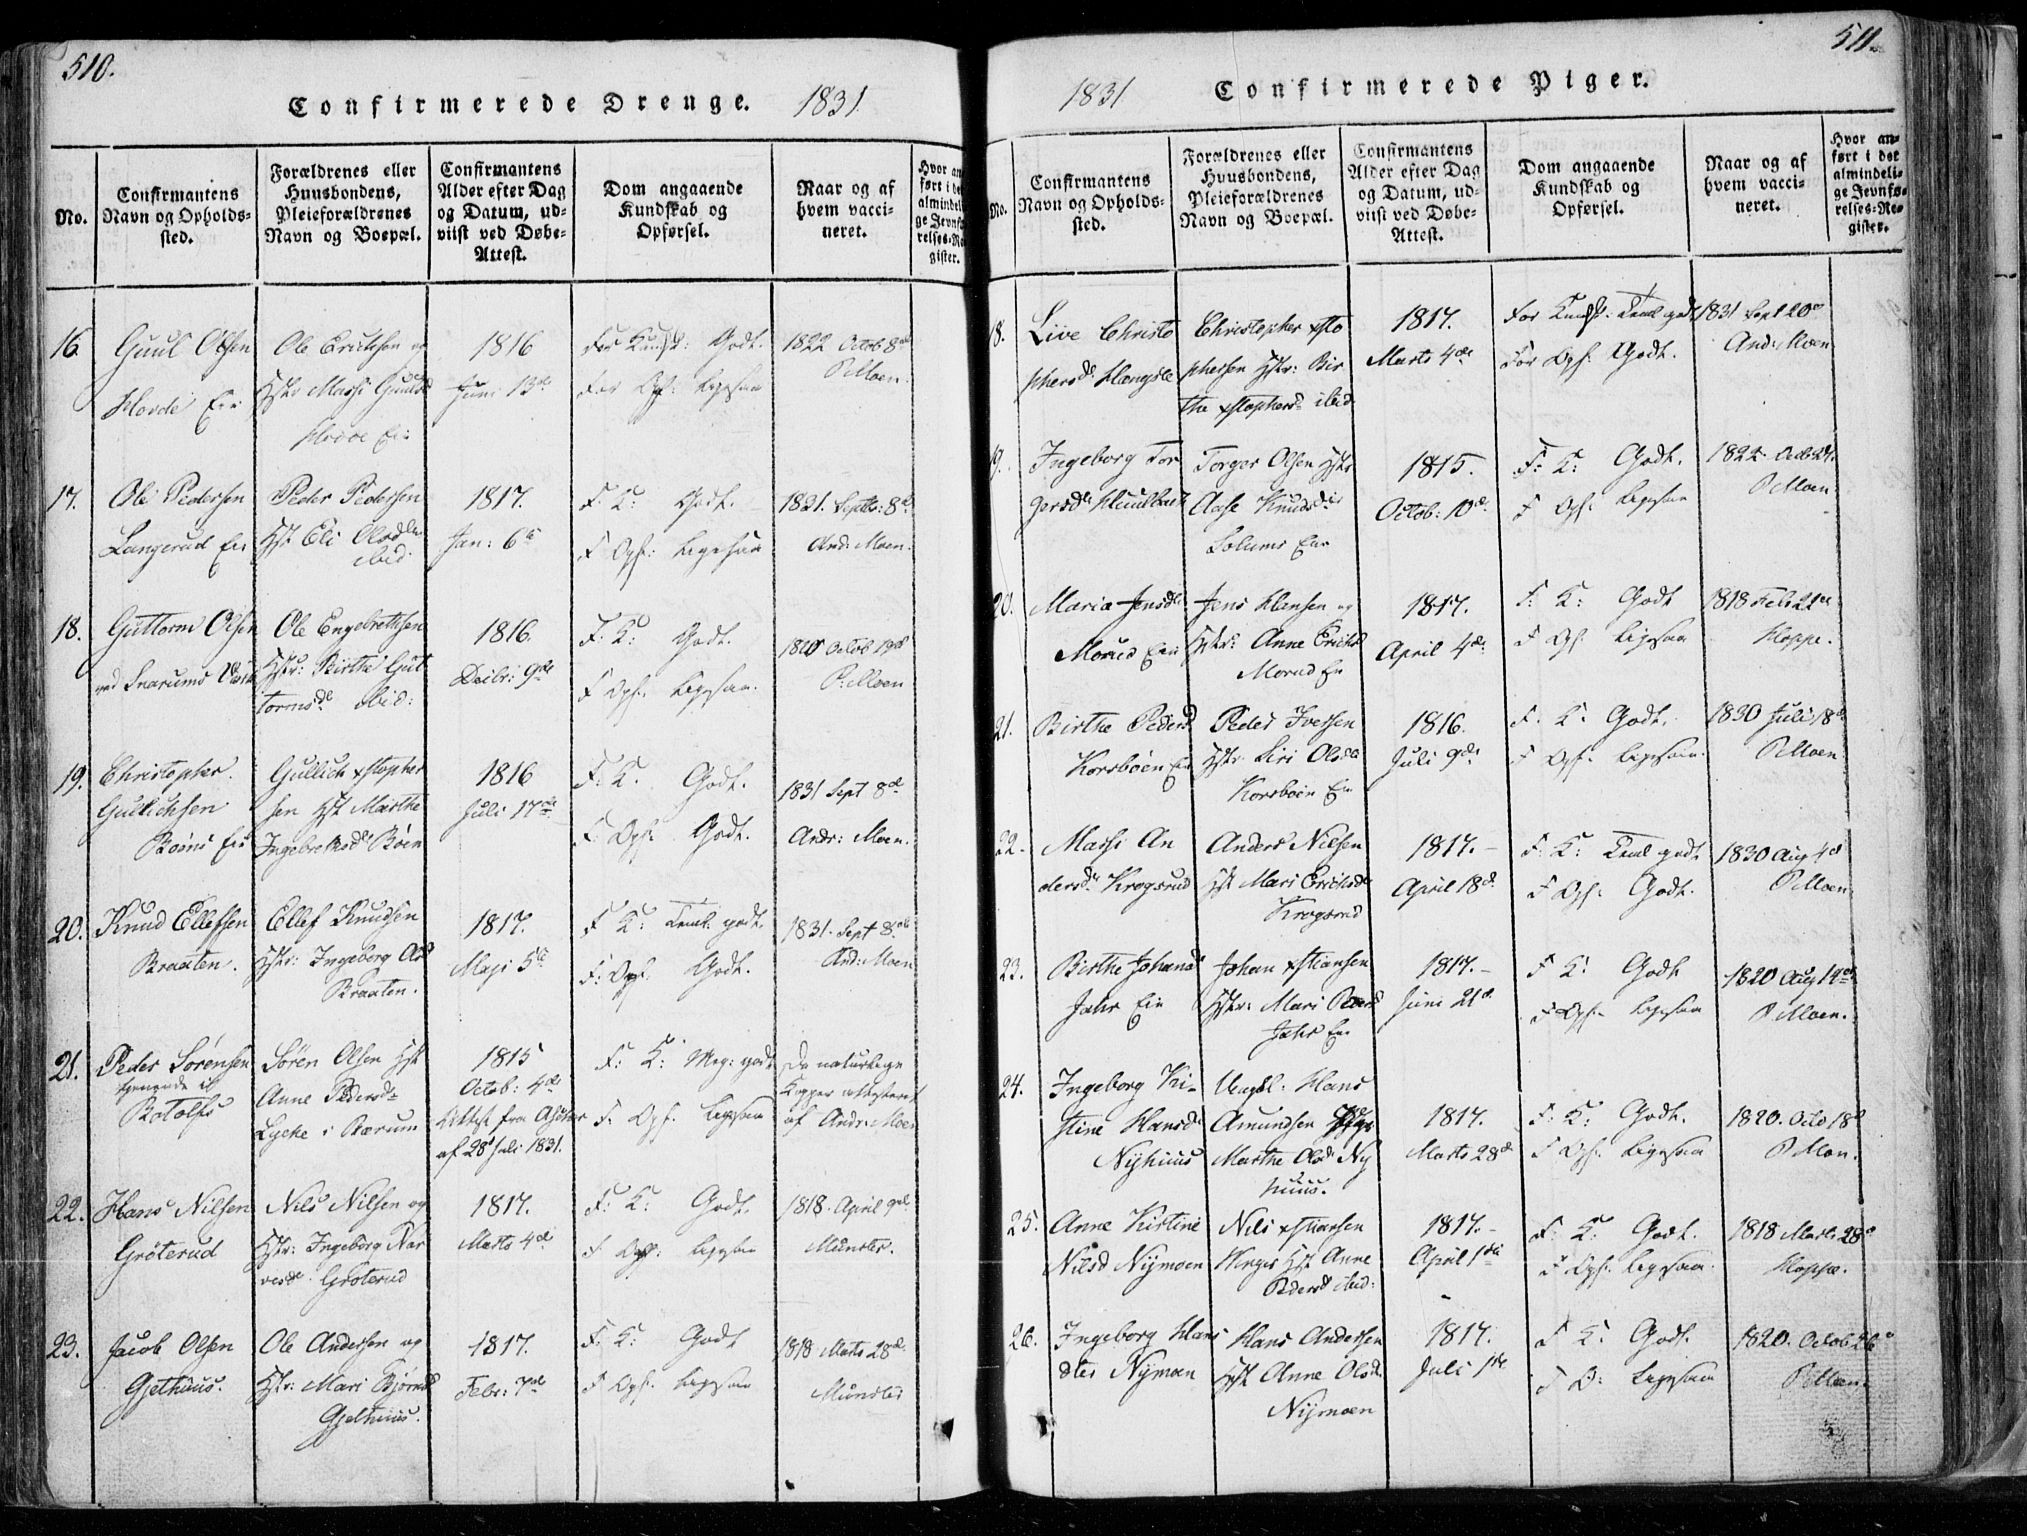 510.
Confirmerede Drenge. 1831.
No.
Confirmantens
Navn og Opholds-
sted.
Forældrenes eller
Huusbondens,
Pleieforældrenes
Navn og Boepæl.
Confirmantens
Alder efter Dag
og Datum, ud-
viist ved Døbe-
Attest.
Dom angaaende
Kundskab og
Opførsel.
Naar og af
hvem vacci-
neret.
Hvor an
ført i de
almindeli
ge Jevnfø
relses-Re
gister.
16.
Guul Olsen
Hovde Eie
Ole Erichsen og
Hstr Massi Guulsd
Hovde Eie
1816
Juni 13de
For Kundsk: Godt.
For Opf: Ligesaa
1822 Octob 8de
P. Moen.
17.
Ole Pedersen
Langerud Eie
Peder Pedersen
Hst Eli Olsd
ibid:
1817.
Jan: 6te
F. K: Godt.
F Opf: Ligesaa
1831. Septbr: 8de
And: Moen.
18.
Guttorm Olsen
ved Snarums
Ole Engebrethsen
Hstr: Birthe Gut
tormsd: ibid:
1816.
Decbr: 9de
F. K: Godt.
F Opf. Ligesaa.
Octob 19de
P. Moen
19.
Christopher
Gullichsen
Böens Eie
Gullich xstopher
sen Hst Marthe
Ingebrethsd Böen
1816
Juli 17de
F. K. Godt.
F. Opf. Godt.
1831 Sept 8de
Andr: Moen.
20.
Knud Ellefsen
Braaten.
Ellef Knudsen
Hstr: Ingeborg
Braaten.
1817.
Maji 5te
F K: Teml. godt.
F. Opf. Godt.
1831. Sept 8de
And: Moen
21.
Peder Sörensen
tjenende
Botolfs
Sören Olsen Hst
Anne Pedersd
Lycke i Bærum
1815
Octob: 4de
Attest fra Asker
af 28 Juli 1831.
F. K: Meg: godt
F. Opf. Ligesaa
De naturlige
Kopper attesteret
af Andr: Moen
22.
Hans Nilsen
Gröterud
Nils Nilsen og
Hstr: Ingeborg Nar
vesd. Gröterud
1817.
Marts 4de
F. K: Godt.
F Opf: Ligesaa
1818. April
Munster.
23.
Jacob Olsen
Gjethuus.
Ole Andersen og
Hstr: Mari Bjørnsd
Gjethuus.
1817.
Febr: 7de
F. K: Godt
F Opf. Ligesaa
1818 Marts 28de.
Munster
511.
1831 Confirmerede Piger.
No.
Confirmantens
Navn og Opholds-
sted.
Forældrenes eller
Huusbondens,
Pleieforældrenes
Navn og Boepæl.
Confirmantens
Alder efter Dag
og Datum, ud-
viist ved Døbe-
Attest.
Dom angaaende
Kundskab og
Opførsel.
Naar og af
hvem vacci-
neret.
Hvor an-
ført i det
almindeli-
ge Jevnfø-
relses-Re-
gister.
18.
Live Christo
phersd
Christopher xsto
phersen Hstr: Bir
the xstophersd ibid
1817.
Marts 4de
For Kundsk: Teml godt
For Opf. Godt.
1831 Sept 20de
And: Moen
19.
Ingeborg Tor
gersd
Torger Olsen Hstr
Aase Knudsd
Solums Eie
1815.
Octob: 10de
F. K: Godt.
F Opf. Ligesaa
P Moen
20.
Maria Jensd
Morud Eie
Jens Hansen og
Hstr: Anne Erichsd
Morud Eie
1817.
April 4de
F. K: Godt
F Opf Ligesaa
1818 Feb 21de
Hoppe.
21.
Birthe Pedersd
Korsböen Eie
Peder Iversen
Hstr: Siri Olsd
Korsböen Eie
1816.
Juli 9de
F. K. Godt.
F Opf. Ligesaa.
1830 Juli 18de
P Moen
22.
Massi An
dersd Krogsrud
Anders Nilsen
Hst Mari Erichsd
Krogsrud
1817.
April 18de
F. K: Teml godt
F Opf: Godt.
1830 Aug 4de
P Moen
23.
Birthe Johansd
Jahr Eie
Johan xstiansen
Hstr: Mari
Jahr Eie
1817.
Juni 21de
F K: Godt
F Opf. Ligesaa
1820 Aug 14de
P Moen.
24.
Ingeborg Ki-
stine Hansd
Nyhuus
Ungkl. Hans
Amundsen
Marthe Olsd Ny
huus.
1817.
Marts 28de
F. K: Godt.
F Opf. Ligesaa
1820. Octo 18de
P Moen.
25.
Anne Kirstine
Nilsd Nymoen
Nils xstiansen
Hst Anne
Pedersd ibid:
1817.
April 1ste
F. K: Godt.
F Opf. Ligesaa.
1818 Marts 28de
Hoppe.
26.
Ingeborg Hans
dter Nymoen
Hans Andersen
Hst Anne Olsd.
Nymoen
1817.
Juli 1ste
F K: Godt.
F O: Ligesaa
1820. Octob 26de
P Moen.